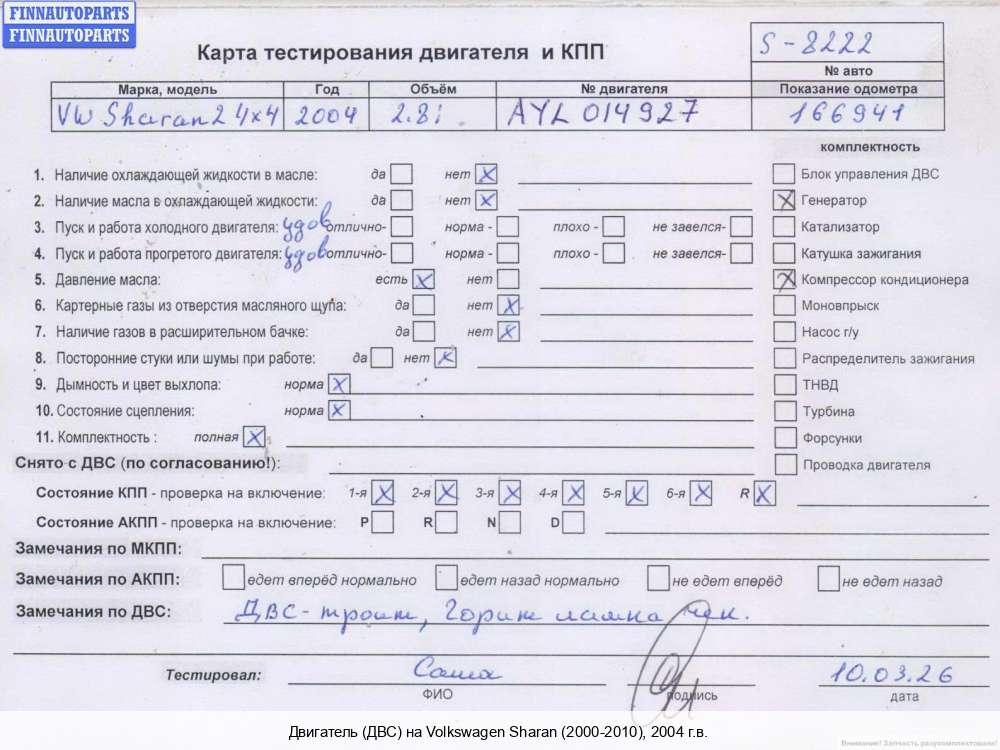 FINNAUTOPARTS
FINNAUTOPARTS
Карта тестирования двигателя и КПП
S-8222
№ авто
Марка, модель Год Объём № двигателя Показание одометра
VW Sharan 2 4x4 2004 2.8i AYL 014927 166941
комплектность
1. Наличие охлаждающей жидкости в масле: да нет X Блок управления ДВС
2. Наличие масла в охлаждающей жидкости: да нет X X Генератор
3. Пуск и работа холодного двигателя: удов отлично- норма - плохо - не завелся- Катализатор
4. Пуск и работа прогретого двигателя: удов отлично- норма - плохо - не завелся- Катушка зажигания
5. Давление масла: есть X нет X Компрессор кондиционера
6. Картерные газы из отверстия масляного щупа: да нет X Моновпрыск
7. Наличие газов в расширительном бачке: да нет X Насос г/у
8. Посторонние стуки или шумы при работе: да нет X Распределитель зажигания
9. Дымность и цвет выхлопа: норма X ТНВД
10. Состояние сцепления: норма X Турбина
11. Комплектность : полная X Форсунки
Снято с ДВС (по согласованию!): Проводка двигателя
Состояние КПП - проверка на включение: 1-я X 2-я X 3-я X 4-я X 5-я X 6-я X R X
Состояние АКПП - проверка на включение: P R N D
Замечания по МКПП:
Замечания по АКПП: едет вперёд нормально едет назад нормально не едет вперёд не едет назад
Замечания по ДВС: ДВС - троит, Горит лампа чек.
Тестировал: Саша 10.03.26
ФИО подпись дата
Двигатель (ДВС) на Volkswagen Sharan (2000-2010), 2004 г.в.
Внимание! Запчасть разукомплектована!